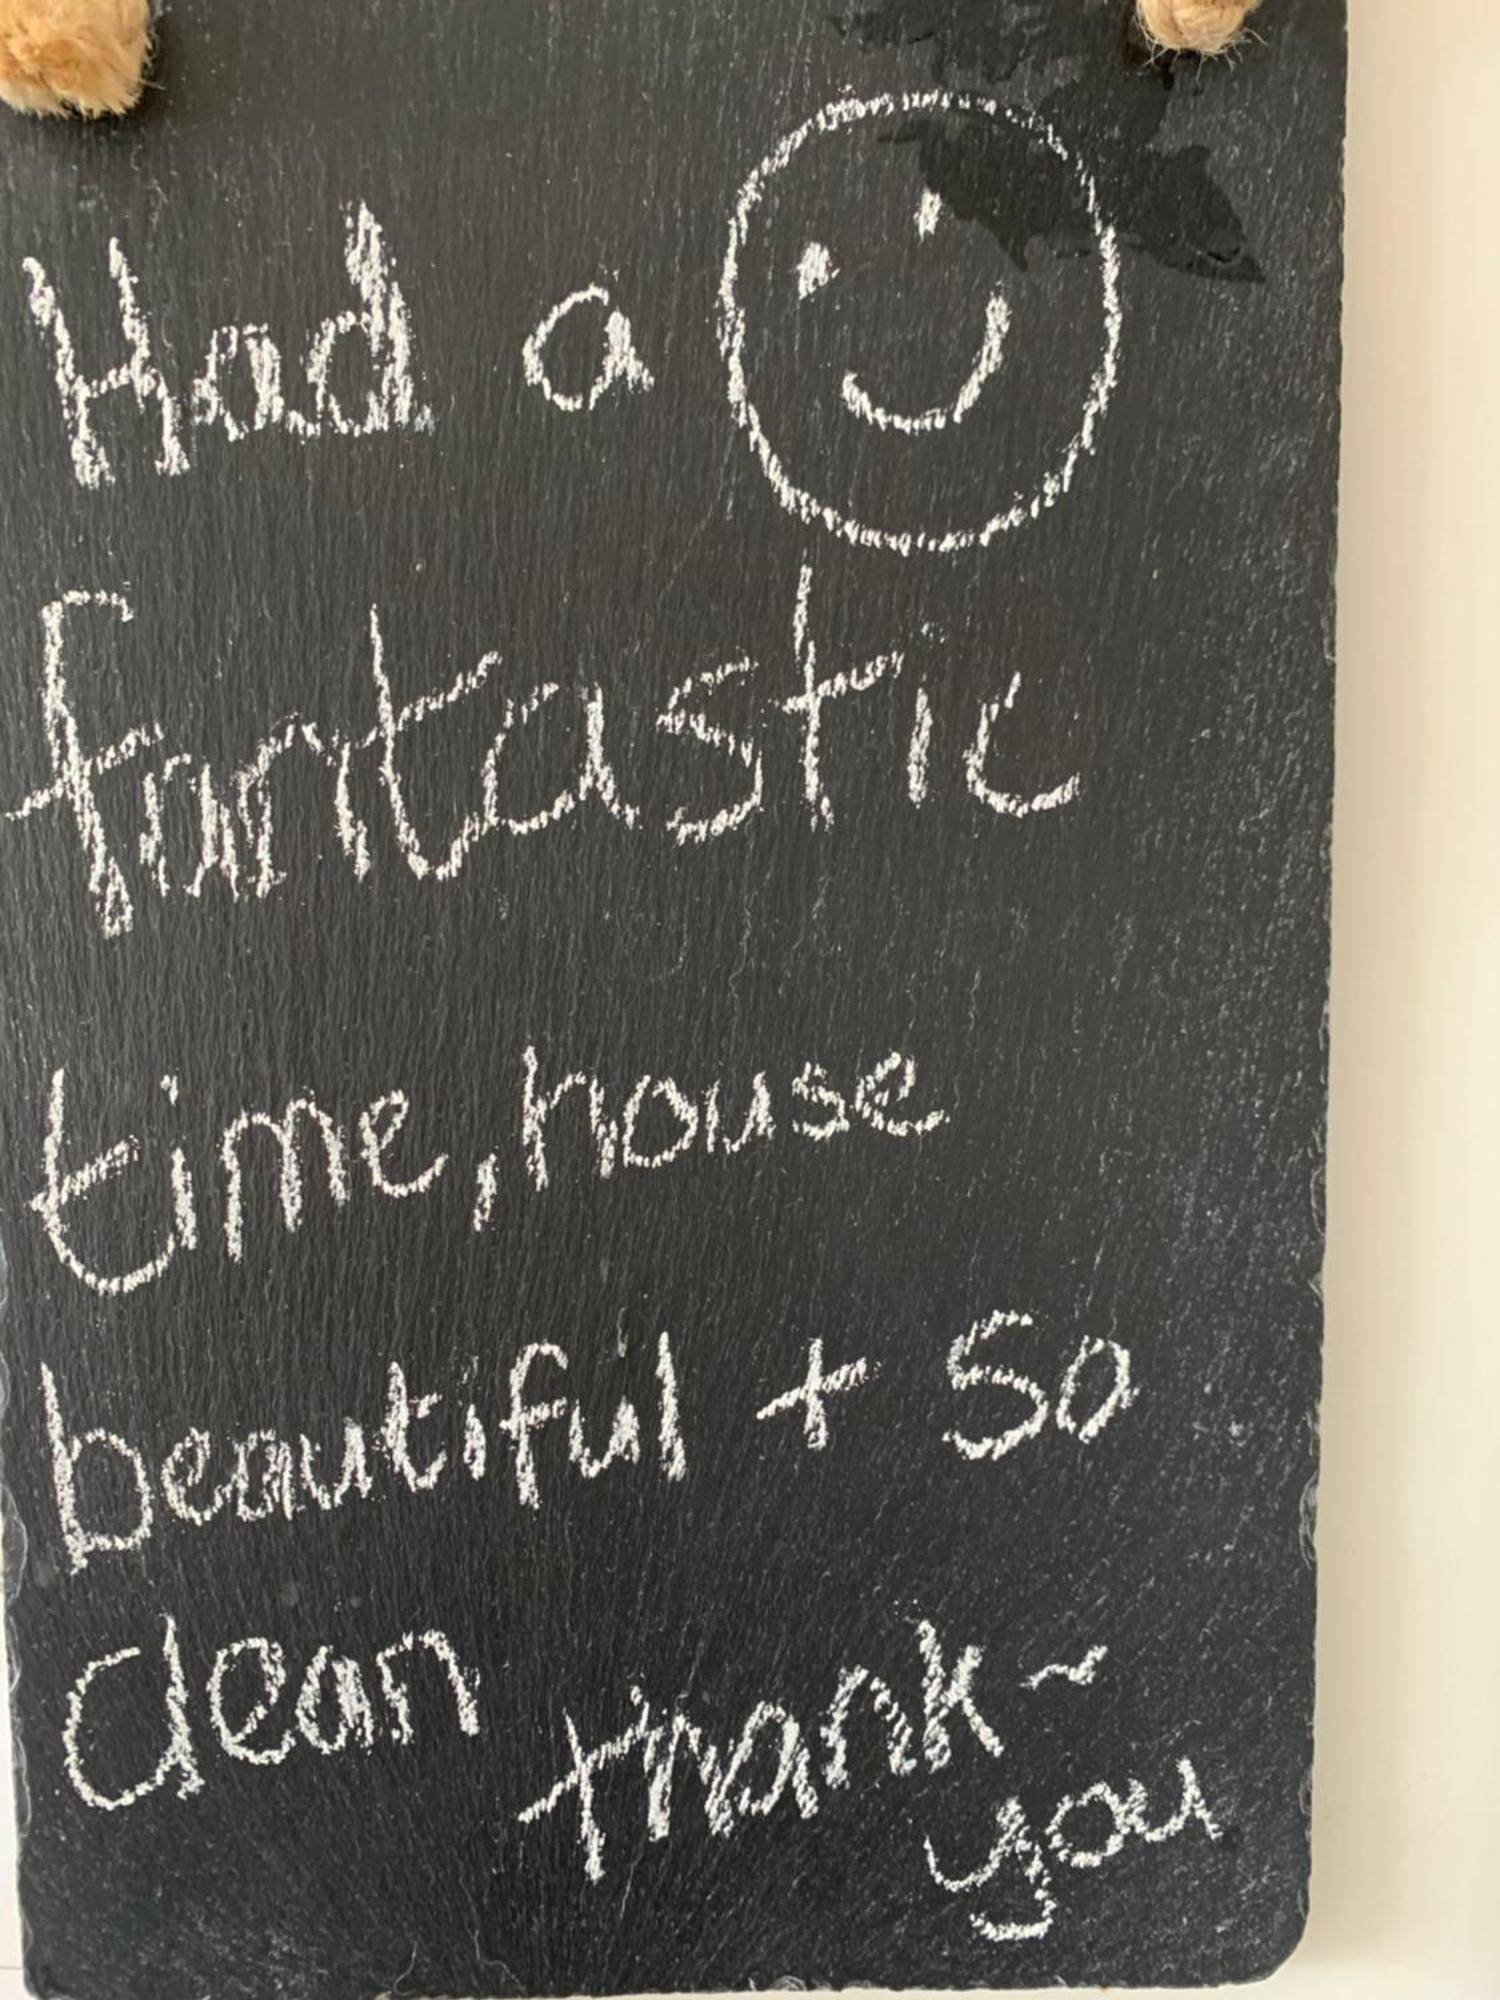 Had a
fantastic
time, house
beautiful + so
clean thank-
you